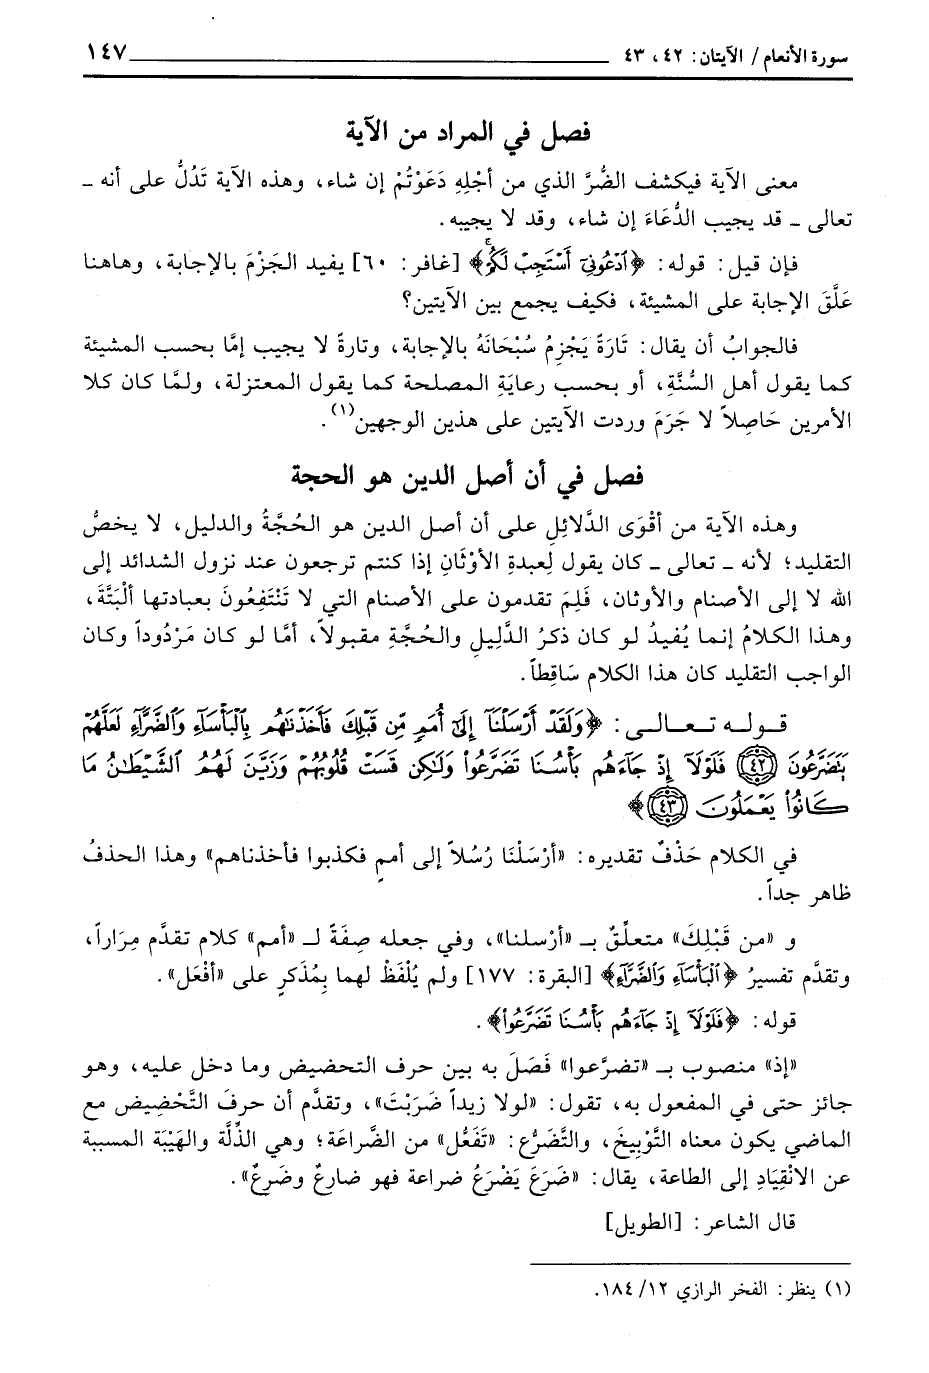 سورة الأنعام / الآيتان: ٤٢، ٤٣ ١٤٧
فصل في المراد من الآية
معنى الآية فيكشف الضُّرَّ الذي من أجْلِهِ دَعَوْتُمْ إن شاء، وهذه الآية تَدُلُّ على أنه ـ
تعالى ـ قد يجيب الدُّعَاءَ إن شاء، وقد لا يجيبه.
فإن قيل: قوله: ﴿ٱدْعُونِيٓ أَسْتَجِبْ لَكُمْۚ﴾ [غافر: ٦٠] يفيد الجَزْمَ بالإجابة، وهاهنا
عَلَّقَ الإجابة على المشيئة، فكيف يجمع بين الآيتين؟
فالجوابُ أن يقال: تَارَةً يَجْزِمُ سُبْحَانَهُ بالإجابة، وتارةً لا يجيب إمَّا بحسب المشيئة
كما يقول أهل السُّنَّةِ، أو بحسب رعايَةِ المصلحة كما يقول المعتزلة، ولمَّا كان كلا
الأمرين حَاصِلاً لا جَرَمَ وردت الآيتين على هذين الوجهين(١).
فصل في أن أصل الدين هو الحجة
وهذه الآية من أقْوَى الدَّلائِلِ على أن أصل الدين هو الحُجَّةُ والدليل، لا يخصُّ
التقليد؛ لأنه ـ تعالى ـ كان يقول لِعبدةِ الأوْثَانِ إذا كنتم ترجعون عند نزول الشدائد إلى
الله لا إلى الأصنام والأوثان، فَلِمَ تقدمون على الأصنام التي لا تَنْتَفِعُونَ بعبادتها ألْبَتَّةَ،
وهذا الكلامُ إنما يُفيدُ لو كان ذكرُ الدَّلِيلِ والحُجَّةِ مقبولاً، أمَّا لو كان مَرْدُوداً وكان
الواجب التقليد كان هذا الكلام سَاقِطاً.
قوله تعالى: ﴿وَلَقَدْ أَرْسَلْنَآ إِلَىٰٓ أُمَمٍ مِّن قَبْلِكَ فَأَخَذْنَـٰهُم بِٱلْبَأْسَآءِ وَٱلضَّرَّآءِ لَعَلَّهُمْ
يَتَضَرَّعُونَ ﴿٤٢﴾ فَلَوْلَآ إِذْ جَآءَهُم بَأْسُنَا تَضَرَّعُوا۟ وَلَـٰكِن قَسَتْ قُلُوبُهُمْ وَزَيَّنَ لَهُمُ ٱلشَّيْطَـٰنُ مَا
كَانُوا۟ يَعْمَلُونَ ﴿٤٣﴾﴾
في الكلام حَذْفٌ تقديره: «أرْسَلْنَا رُسُلاً إلى أممٍ فكذبوا فأخذناهم» وهذا الحذفُ
ظاهر جداً.
و «من قَبْلِكَ» متعلِّقٌ بـ «أرسلنا»، وفي جعله صِفَةً لـ «أمم» كلام تقدَّم مِرَاراً،
وتقدَّم تفسيرُ ﴿ٱلْبَأْسَآءِ وَٱلضَّرَّآءِ﴾ [البقرة: ١٧٧] ولم يُلْفَظْ لهما بِمُذَكرٍ على «أفْعَل».
قوله: ﴿فَلَوْلَآ إِذْ جَآءَهُم بَأْسُنَا تَضَرَّعُوا۟﴾.
«إذ» منصوب بـ «تضرَّعوا» فَصَلَ به بين حرف التحضيض وما دخل عليه، وهو
جائز حتى في المفعول به، تقول: «لولا زيداً ضَرَبْتَ»، وتقدَّم أن حرفَ التَّحْضِيضِ مع
الماضي يكون معناه التَّوْبِيخَ، والتَّضَرُّع: «تَفَعُّل» من الضَّراعَة؛ وهي الذِّلَّة والهَيْبَة المسببة
عن الانْقِيَادِ إلى الطاعة، يقال: «ضَرَعَ يَضْرَعُ ضراعة فهو ضارعٌ وضَرِعٌ».
قال الشاعر: [الطويل]
(١) ينظر: الفخر الرازي ١٢/ ١٨٤.